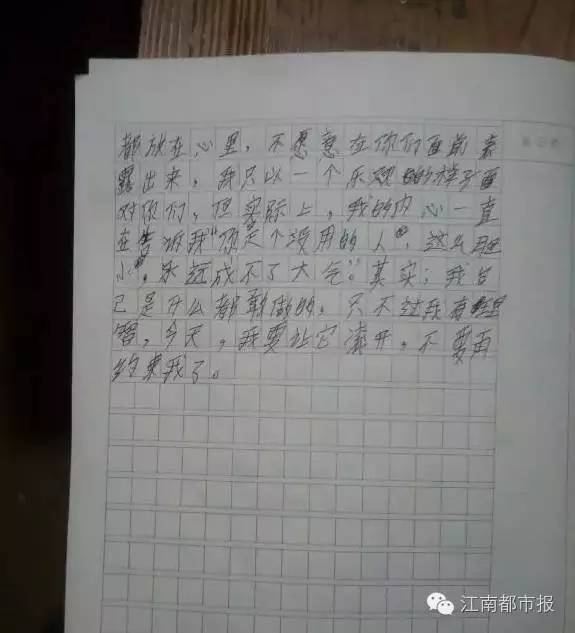 都放在心里，不愿意在你们面前表
露出来，我只以一个乐观的样子面
对你们，但实际上，我的内心一直
在告诉我“你是个没用的人，这么胆
小，永远成不了大气。”其实，我自
己是什么都敢做的，只不过我有理
智，今天，我要让它滚开，不要再
约束我了。
江南都市报